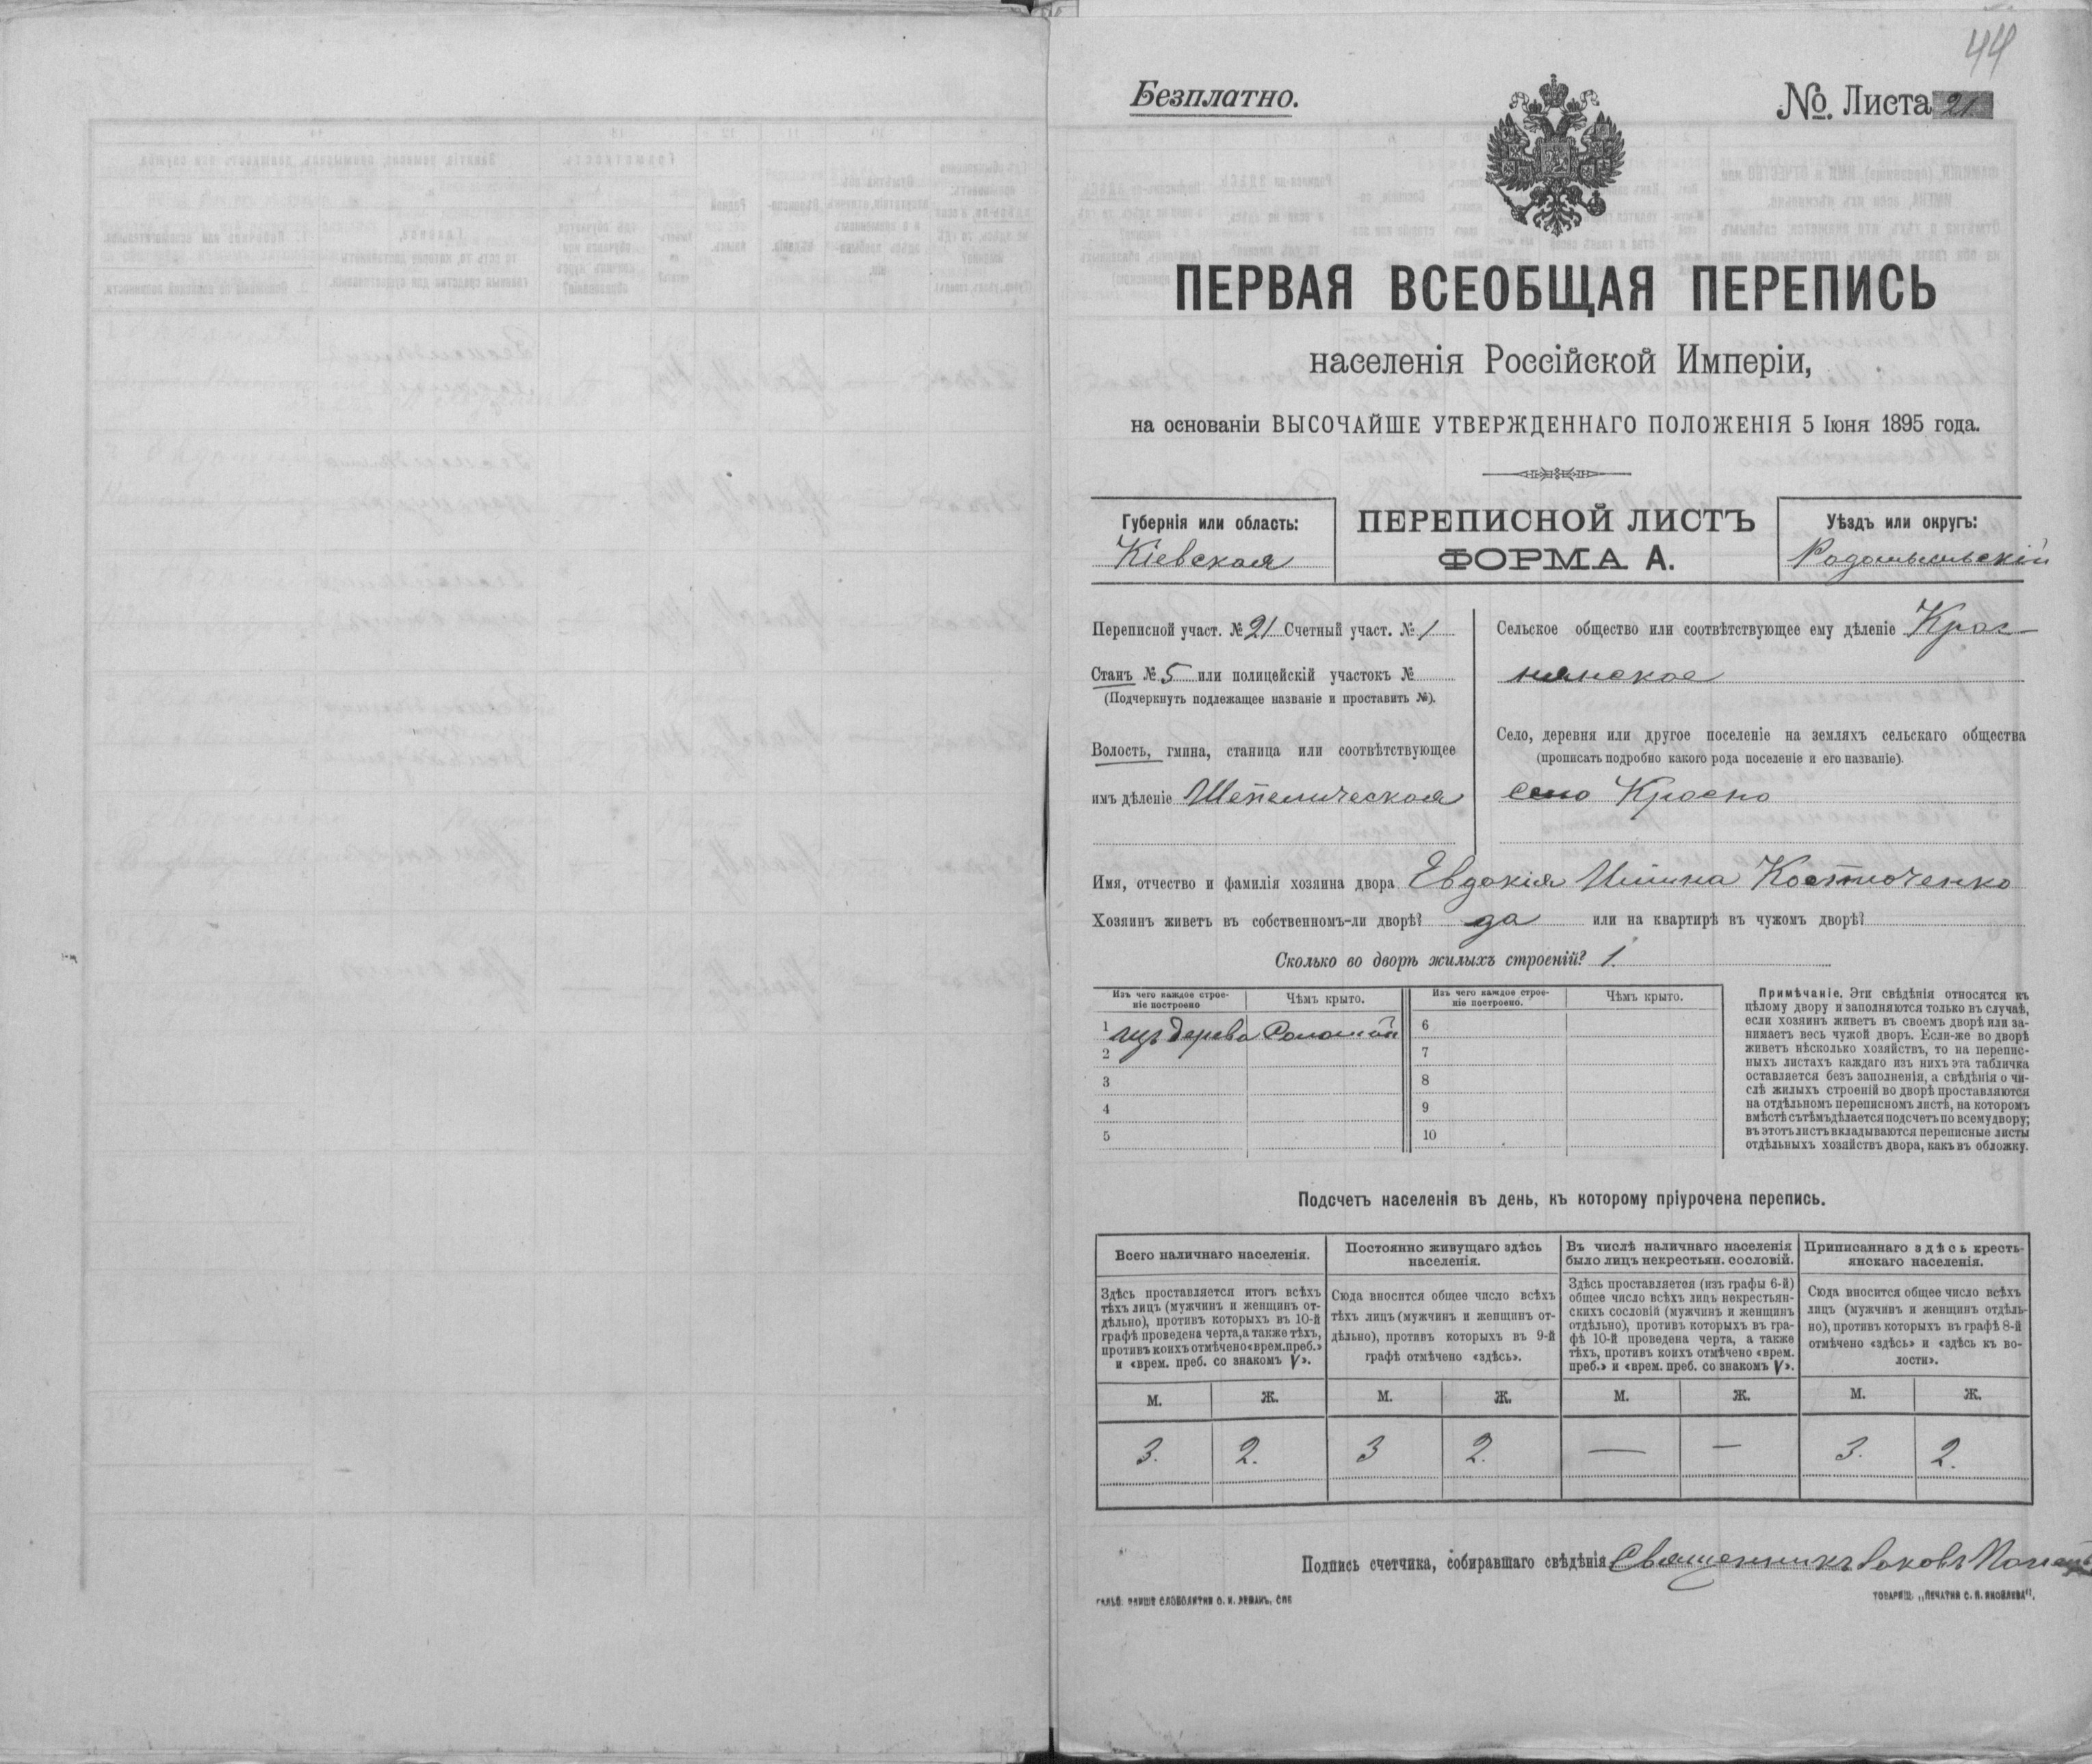 44
Безплатно.
№. Листа 21
ПЕРВАЯ ВСЕОБЩАЯ ПЕРЕПИСЬ
населенія Россійской Имперіи,
на основаніи ВЫСОЧАЙШЕ УТВЕРЖДЕННАГО ПОЛОЖЕНІЯ 5 Іюня 1895 года.
Губернія или область:
Кіевская
ПЕРЕПИСНОЙ ЛИСТЪ
ФОРМА А.
Уѣздъ или округъ:
Радомысльскій
Переписной участ. № 21 Счетный участ. № 1
Станъ № 5 или полицейскій участокъ №
(Подчеркнуть подлежащее названіе и проставить №).
Волость, гмина, станица или соотвѣтствующее
имъ дѣленіе Шепелическая
Сельское общество или соотвѣтствующее ему дѣленіе Крас
нянское
Село, деревня или другое поселеніе на земляхъ сельскаго общества
(прописать подробно какого рода поселеніе и его названіе).
село Красно
Имя, отчество и фамилія хозяина двора Евдокія Костюченко
Хозяинъ живетъ въ собственномъ-ли дворѣ? да или на квартирѣ въ чужомъ дворѣ?
Сколько во дворѣ жилыхъ строеній? 1.
Изъ чего каждое строе-
ніе построено
Чѣмъ крыто.
Изъ чего каждое строе-
ніе построено.
Чѣмъ крыто.
1 изъ дерева Соломой
2
3
4
5
6
7
8
9
10
Примѣчаніе. Эти свѣдѣнія относятся къ
цѣлому двору и заполняются только въ случаѣ,
если хозяинъ живетъ въ своемъ дворѣ или за-
нимаетъ весь чужой дворъ. Если-же во дворѣ
живетъ нѣсколько хозяйствъ, то на перепис-
ныхъ листахъ каждаго изъ нихъ эта табличка
оставляется безъ заполненія, а свѣдѣнія о чи-
слѣ жилыхъ строеній во дворѣ проставляются
на отдѣльномъ переписномъ листѣ, на которомъ
вмѣстѣ съ тѣмъ дѣлается подсчетъ по всему двору;
въ этотъ листъ вкладываются переписные листы
отдѣльныхъ хозяйствъ двора, какъ въ обложку.
Подсчетъ населенія въ день, къ которому пріурочена перепись.
Всего наличнаго населенія.
Постоянно живущаго здѣсь
населенія.
Въ числѣ наличнаго населенія
было лицъ некрестьян. сословій.
Приписаннаго здѣсь кресть-
янскаго населенія.
Здѣсь проставляется итогъ всѣхъ
тѣхъ лицъ (мужчинъ и женщинъ от-
дѣльно), противъ которыхъ въ 10-й
графѣ проведена черта, а также тѣхъ,
противъ коихъ отмѣчено «врем. преб.»
и «врем. преб. со знакомъ V».
Сюда вносится общее число всѣхъ
тѣхъ лицъ (мужчинъ и женщинъ от-
дѣльно), противъ которыхъ въ 9-й
графѣ отмѣчено «здѣсь».
Здѣсь проставляется (изъ графы 6-й)
общее число всѣхъ лицъ некрестьян-
скихъ сословій (мужчинъ и женщинъ
отдѣльно), противъ которыхъ въ гра-
фѣ 10-й проведена черта, а также
тѣхъ, противъ коихъ отмѣчено «врем.
преб.» и «врем. преб. со знакомъ V».
Сюда вносится общее число всѣхъ
лицъ (мужчинъ и женщинъ отдѣль-
но), противъ которыхъ въ графѣ 8-й
отмѣчено «здѣсь» и «здѣсь къ во-
лости».
М. Ж. М. Ж. М. Ж. М. Ж.
3. 2. 3 2. — — 3. 2.
Подпись счетчика, собиравшаго свѣдѣнія Священникъ Іаковъ
ТОВАРИЩ. „ПЕЧАТНЯ С. П. ЯКОВЛЕВА".